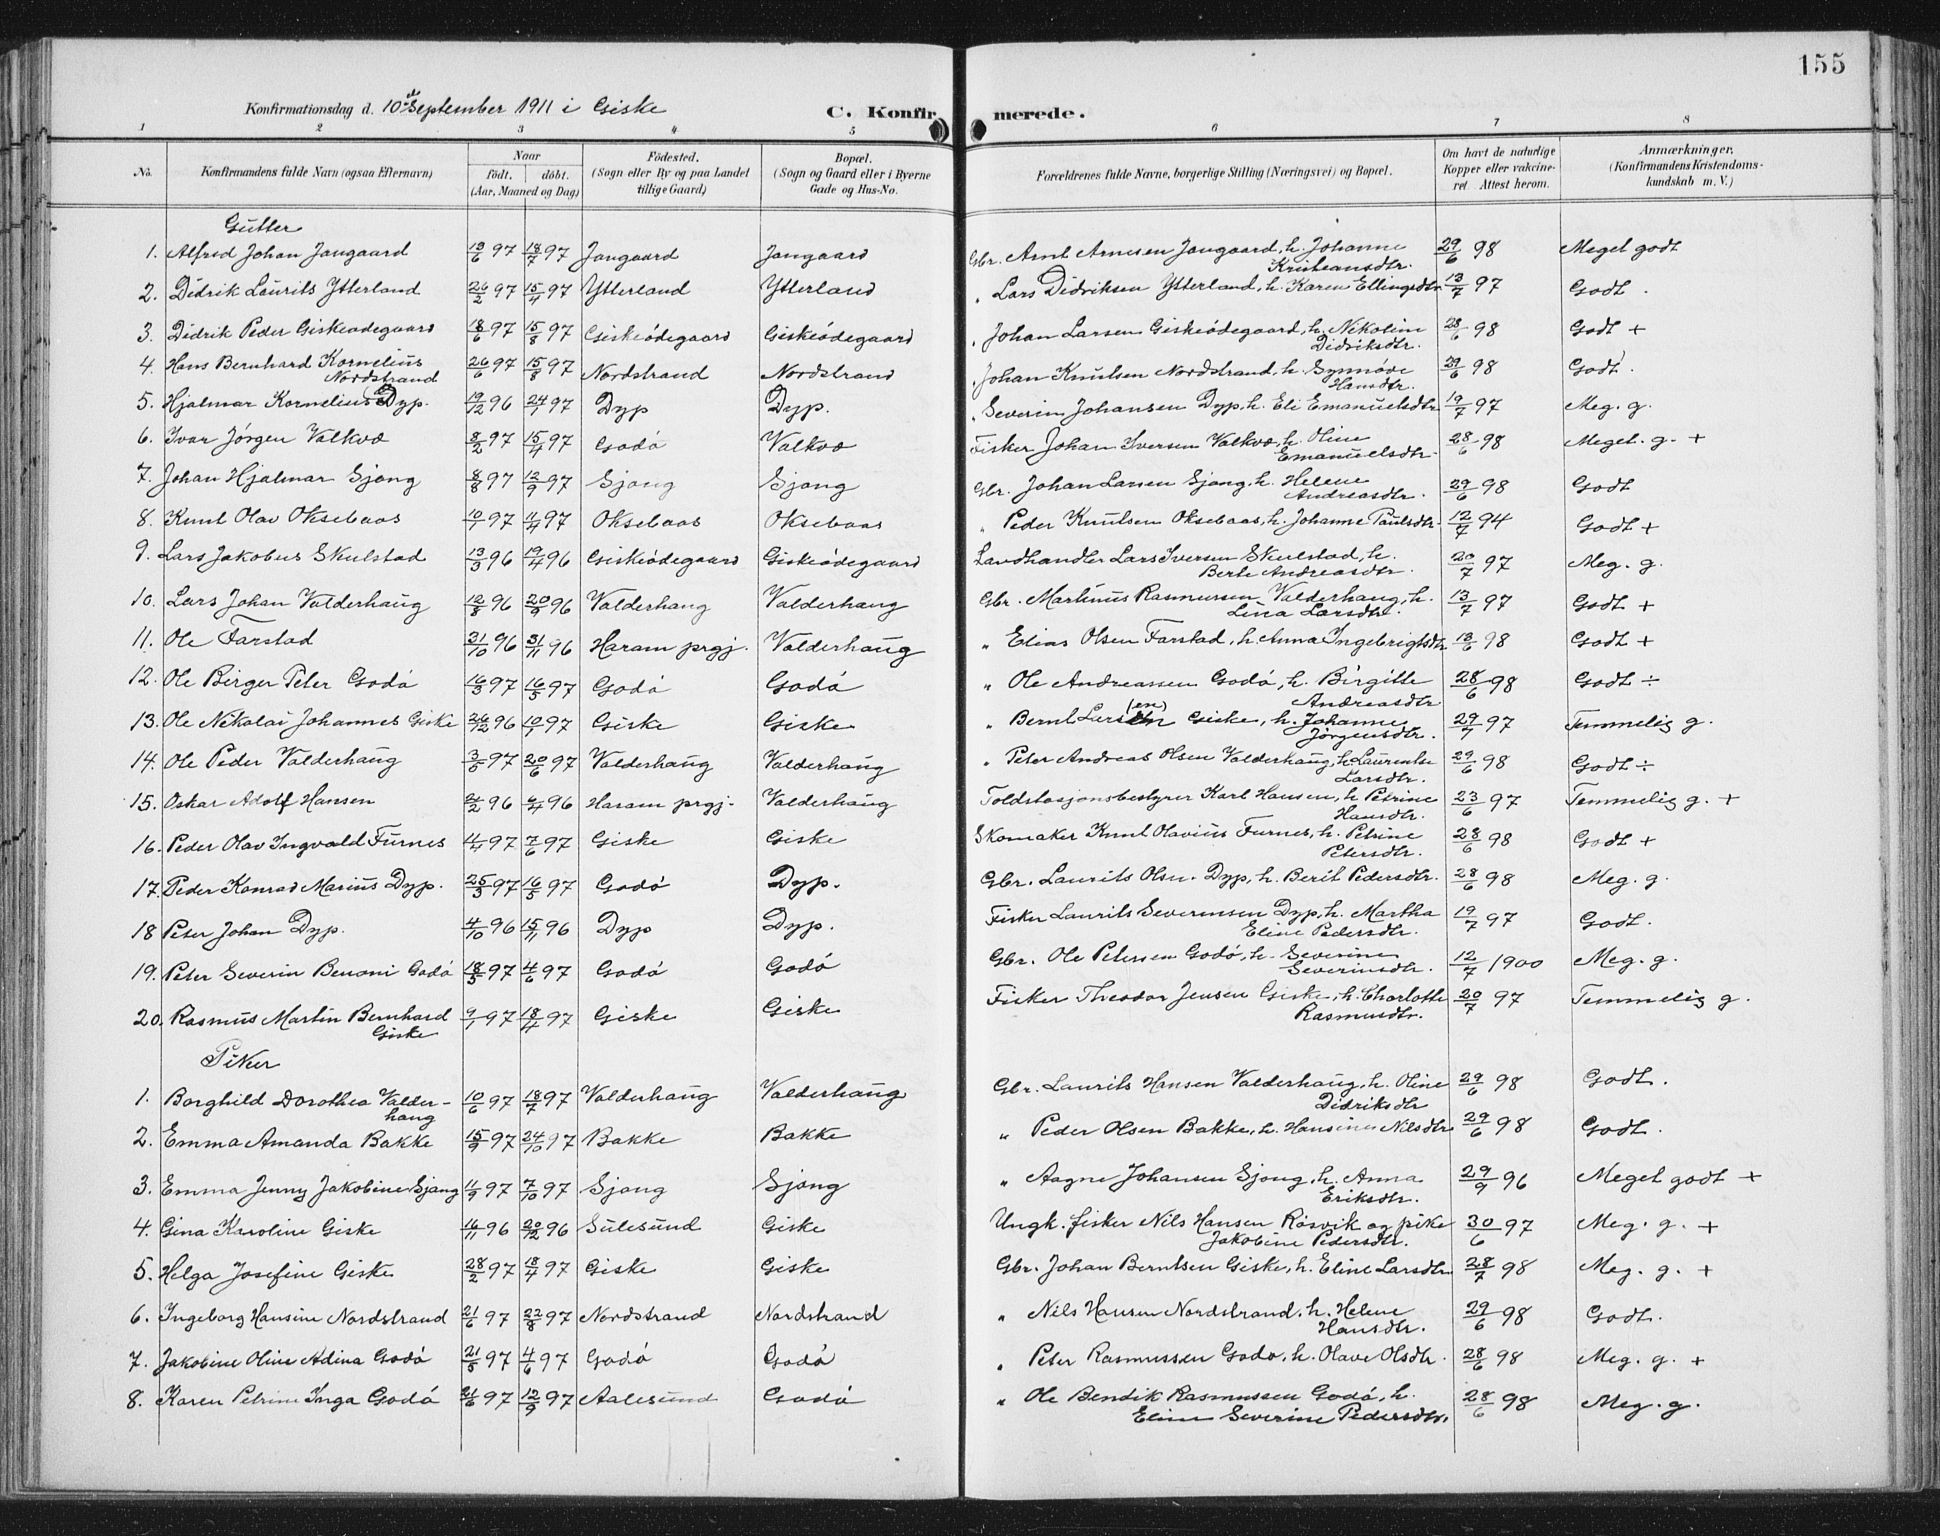 155
Konfirmationsdag d. 10de September 1911 i Giske C. Konfirmerede.
1 2 3 4 5 6 7 8
No. Konfirmandens fulde Navn (ogsaa Efternavn) Naar født. døbt. (Aar, Maaned og Dag) Fødested. (Sogn eller By og paa Landet tillige Gaard) Bopæl. (Sogn og Gaard eller i Byerne Gade og Hus-No. Forældrenes fulde Navne, borgerlige Stilling (Næringsvei) og Bopæl. Om havt de naturlige Kopper eller vakcineret. Attest herom. Anmærkninger. (Konfirmandens Kristendomskundskab m. V.)
Gutter
1. Alfred Johan Jangaard 13/6 97 18/7 97 Jangaard Jangaard Gbr. Arnt Arnesen Jangaard, h. Johanne Kristiansdtr. 29/6 98 Meget godt
2. Didrik Laurits Ytterland 26/2 97 15/4 97 Ytterland Ytterland " Lars Didriksen Ytterland, h. Karen Ellingsdtr 13/7 97 Godt.
3. Didrik Peder Giskeødegaard 18/6 97 15/8 97 Giskeødegaard Giskeødegaard " Johan Larsen Giskeødegaard, h. Nikoline Didriksdtr. 28/6 98 Godt +
4. Hans Bernhard Kornelius Nordstrand 26/6 97 15/8 97 Nordstrand Nordstrand " Johan Knutsen Nordstrand, h. Synnøve Hansdtr. 29/6 98 Godt.
5. Hjalmar Kornelius Dyp. 19/12 96 24/1 97 Dyp Dyp. " Severin Johansen Dyp, h. Eli Emanuelsdtr 19/7 97 Meg. g.
6. Ivar Jørgen Valkvæ 8/2 97 15/4 97 Godø Valkvæ Fisker Johan Iversen Valkvæ, h. Oline Emanuelsdtr 28/6 98 Meget. g. +
7. Johan Hjalmar Sjong 8/8 97 12/9 97 Sjong Sjong Gbr. Johan Larsen Sjong, h. Helene Andreasdtr. 29/6 98 Godt
8. Knut Olav Oksebaas 10/1 97 11/4 97 Oksebaas Oksebaas " Peder Knutsen Oksebaas, h. Johanne Paulsdtr 12/7 94 Godt +
9. Lars Jakobus Skulstad 13/3 96 19/4 96 Giskeødegaard Giskeødegaard Landhandler Lars Iversen Skulstad, h. Berte Andreasdtr. 20/7 97 Meg. g.
10. Lars Johan Valderhaug 12/8 96 20/9 96 Valderhaug Valderhaug Gbr. Martinus Rasmussen Valderhaug, h. Lina Larsdtr. 13/7 97 Godt +
11. Ole Farstad 31/10 96 31/11 96 Haram prgj. Valderhaug " Elias Olsen Farstad, h. Anna Ingebrigtsdtr 13/6 98 Godt +
12. Ole Birger Peter Godø 16/3 97 16/5 97 Godø Godø " Ole Andreassen Godø, h. Birgitte Andreasdtr 28/6 98 Godt ÷
13. Ole Nikolai Johannes Giske 26/12 96 10/1 97 Giske Giske " Bernt Larsen (en) Giske, h. Johanne Jørgensdtr. 29/7 97 Temmelig g.
14. Ole Peder Valderhaug 3/5 97 20/6 97 Valderhaug Valderhaug " Peter Andreas Olsen Valderhaug, h. Laurentse Larsdtr. 29/6 98 Godt ÷
15. Oskar Adolf Hansen 2/2 96 6/4 96 Haram prgj. Valderhaug Toldstasjonsbestyrer Karl Hansen, h. Petrine Hansdtr. 23/6 97 Temmelig g. +
16. Peder Olav Ingvald Furnes 11/4 97 7/6 97 Giske Giske Skomaker Knut Olavius Furnes, h. Petrine Petersdtr. 28/6 98 Godt +
17. Peder Konrad Marius Dyp. 25/3 97 16/5 97 Godø Dyp. Gbr. Laurits Olsn. Dyp, h. Berit Pedersdtr. 28/6 98 Meg. g.
18 Peter Johan Dyp. 4/10 96 15/11 96 Dyp Dyp. Fisker Laurits Severinsen Dyp, h. Martha Eline Pedersdtr. 19/7 97 Godt.
19. Peter Severin Benoni Godø 18/5 97 4/6 97 Godø Godø Gbr. Ole Petersen Godø, h. Severine Severinsdtr. 12/7 1900 Meg. g.
20. Rasmus Martin Bernhard Giske 9/1 97 18/4 97 Giske Giske Fisker Theodor Jensen Giske, h. Charlotte Rasmusdtr. 20/7 97 Temmelig g.
Piker
1. Borghild Dorothea Valderhaug 10/6 97 18/7 97 Valderhaug Valderhaug Gbr. Laurits Hansen Valderhaug, h. Oline Didriksdtr 29/6 98 Godt.
2. Emma Amanda Bakke 15/9 97 24/10 97 Bakke Bakke " Peder Olsen Bakke, h. Hansine Nilsdtr 29/6 98 Godt.
3. Emma Jenny Jakobine Sjong 11/9 97 7/10 97 Sjong Sjong " Aagne Johansen Sjong, h. Anna Eriksdtr. 29/9 96 Meget godt +
4. Gina Karoline Giske 16/11 96 20/12 96 Sulesund Giske Ungk. fisker Nils Hansen Røsvik og pike Jakobine Pedersdtr. 30/6 97 Meg. g. +
5. Helga Josefine Giske 28/2 97 18/4 97 Giske Giske Gbr. Johan Berntsen Giske, h. Eline Larsdtr 28/7 98 Meg. g. +
6. Ingeborg Hansine Nordstrand 21/6 97 22/8 97 Nordstrand Nordstrand " Nils Hansen Nordstrand, h. Helene Hansdtr. 29/6 98 Godt.
7. Jakobine Oline Adina Godø 21/5 97 4/6 97 Godø Godø " Peter Rasmussen Godø, h. Olave Olsdtr. 28/6 98 Meg. g. +
8. Karen Petrine Inga Godø 21/6 97 12/9 97 Aalesund Godø " Ole Bendik Rasmussen Godø, h. Eline Severine Pedersdtr. 28/6 98 Meg. g.